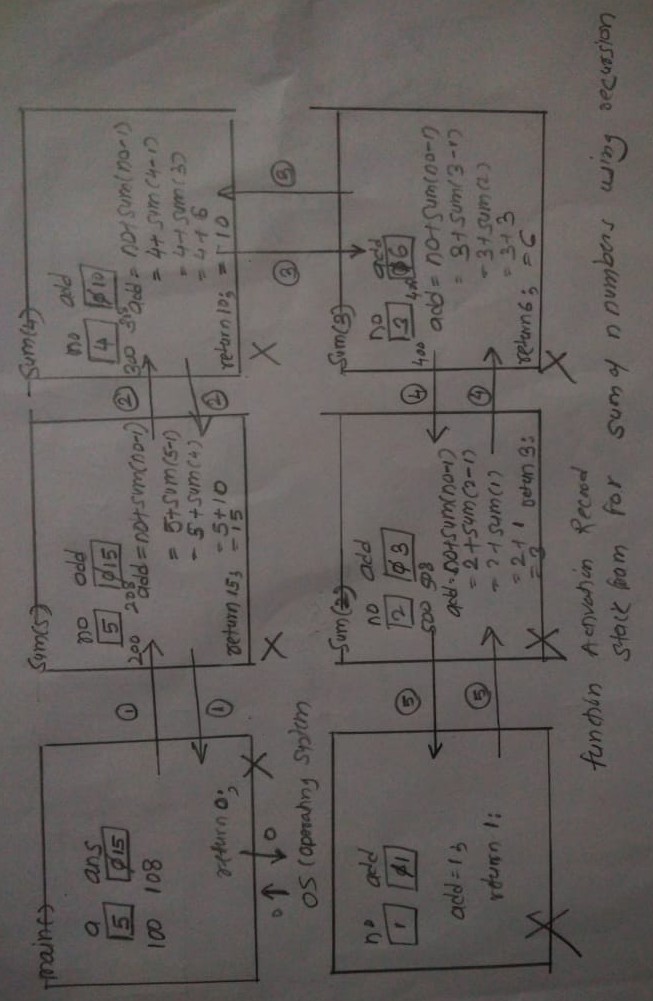 main()
a ans
5 0 15
100 108
return 0;
0 0
OS (Operating System
1
1
Sum(5)
no add
5 0 15
200 208
add = no+sum(no-1)
= 5+sum(5-1)
= 5+sum(4)
= 5+10
return 15; = 15
2
2
Sum(4)
no add
4 0 10
300
add = no+sum(no-1)
= 4+sum(4-1)
= 4+sum(3)
= 4+6
return 10; = 10
3
3
Sum(3)
no add
3 0 6
400 408
add = no+sum(no-1)
= 3+sum(3-1)
= 3+sum(2)
= 3+3
return 6; = 6
4
4
Sum(2)
no add
2 0 3
500 508
add = no+sum(no-1)
= 2+sum(2-1)
= 2+sum(1)
= 2+1 return 3;
= 3
5
5
no add
1 0 1
add = 1;
return 1;
function Activation Record
stack fram for sum of n numbers using recursion